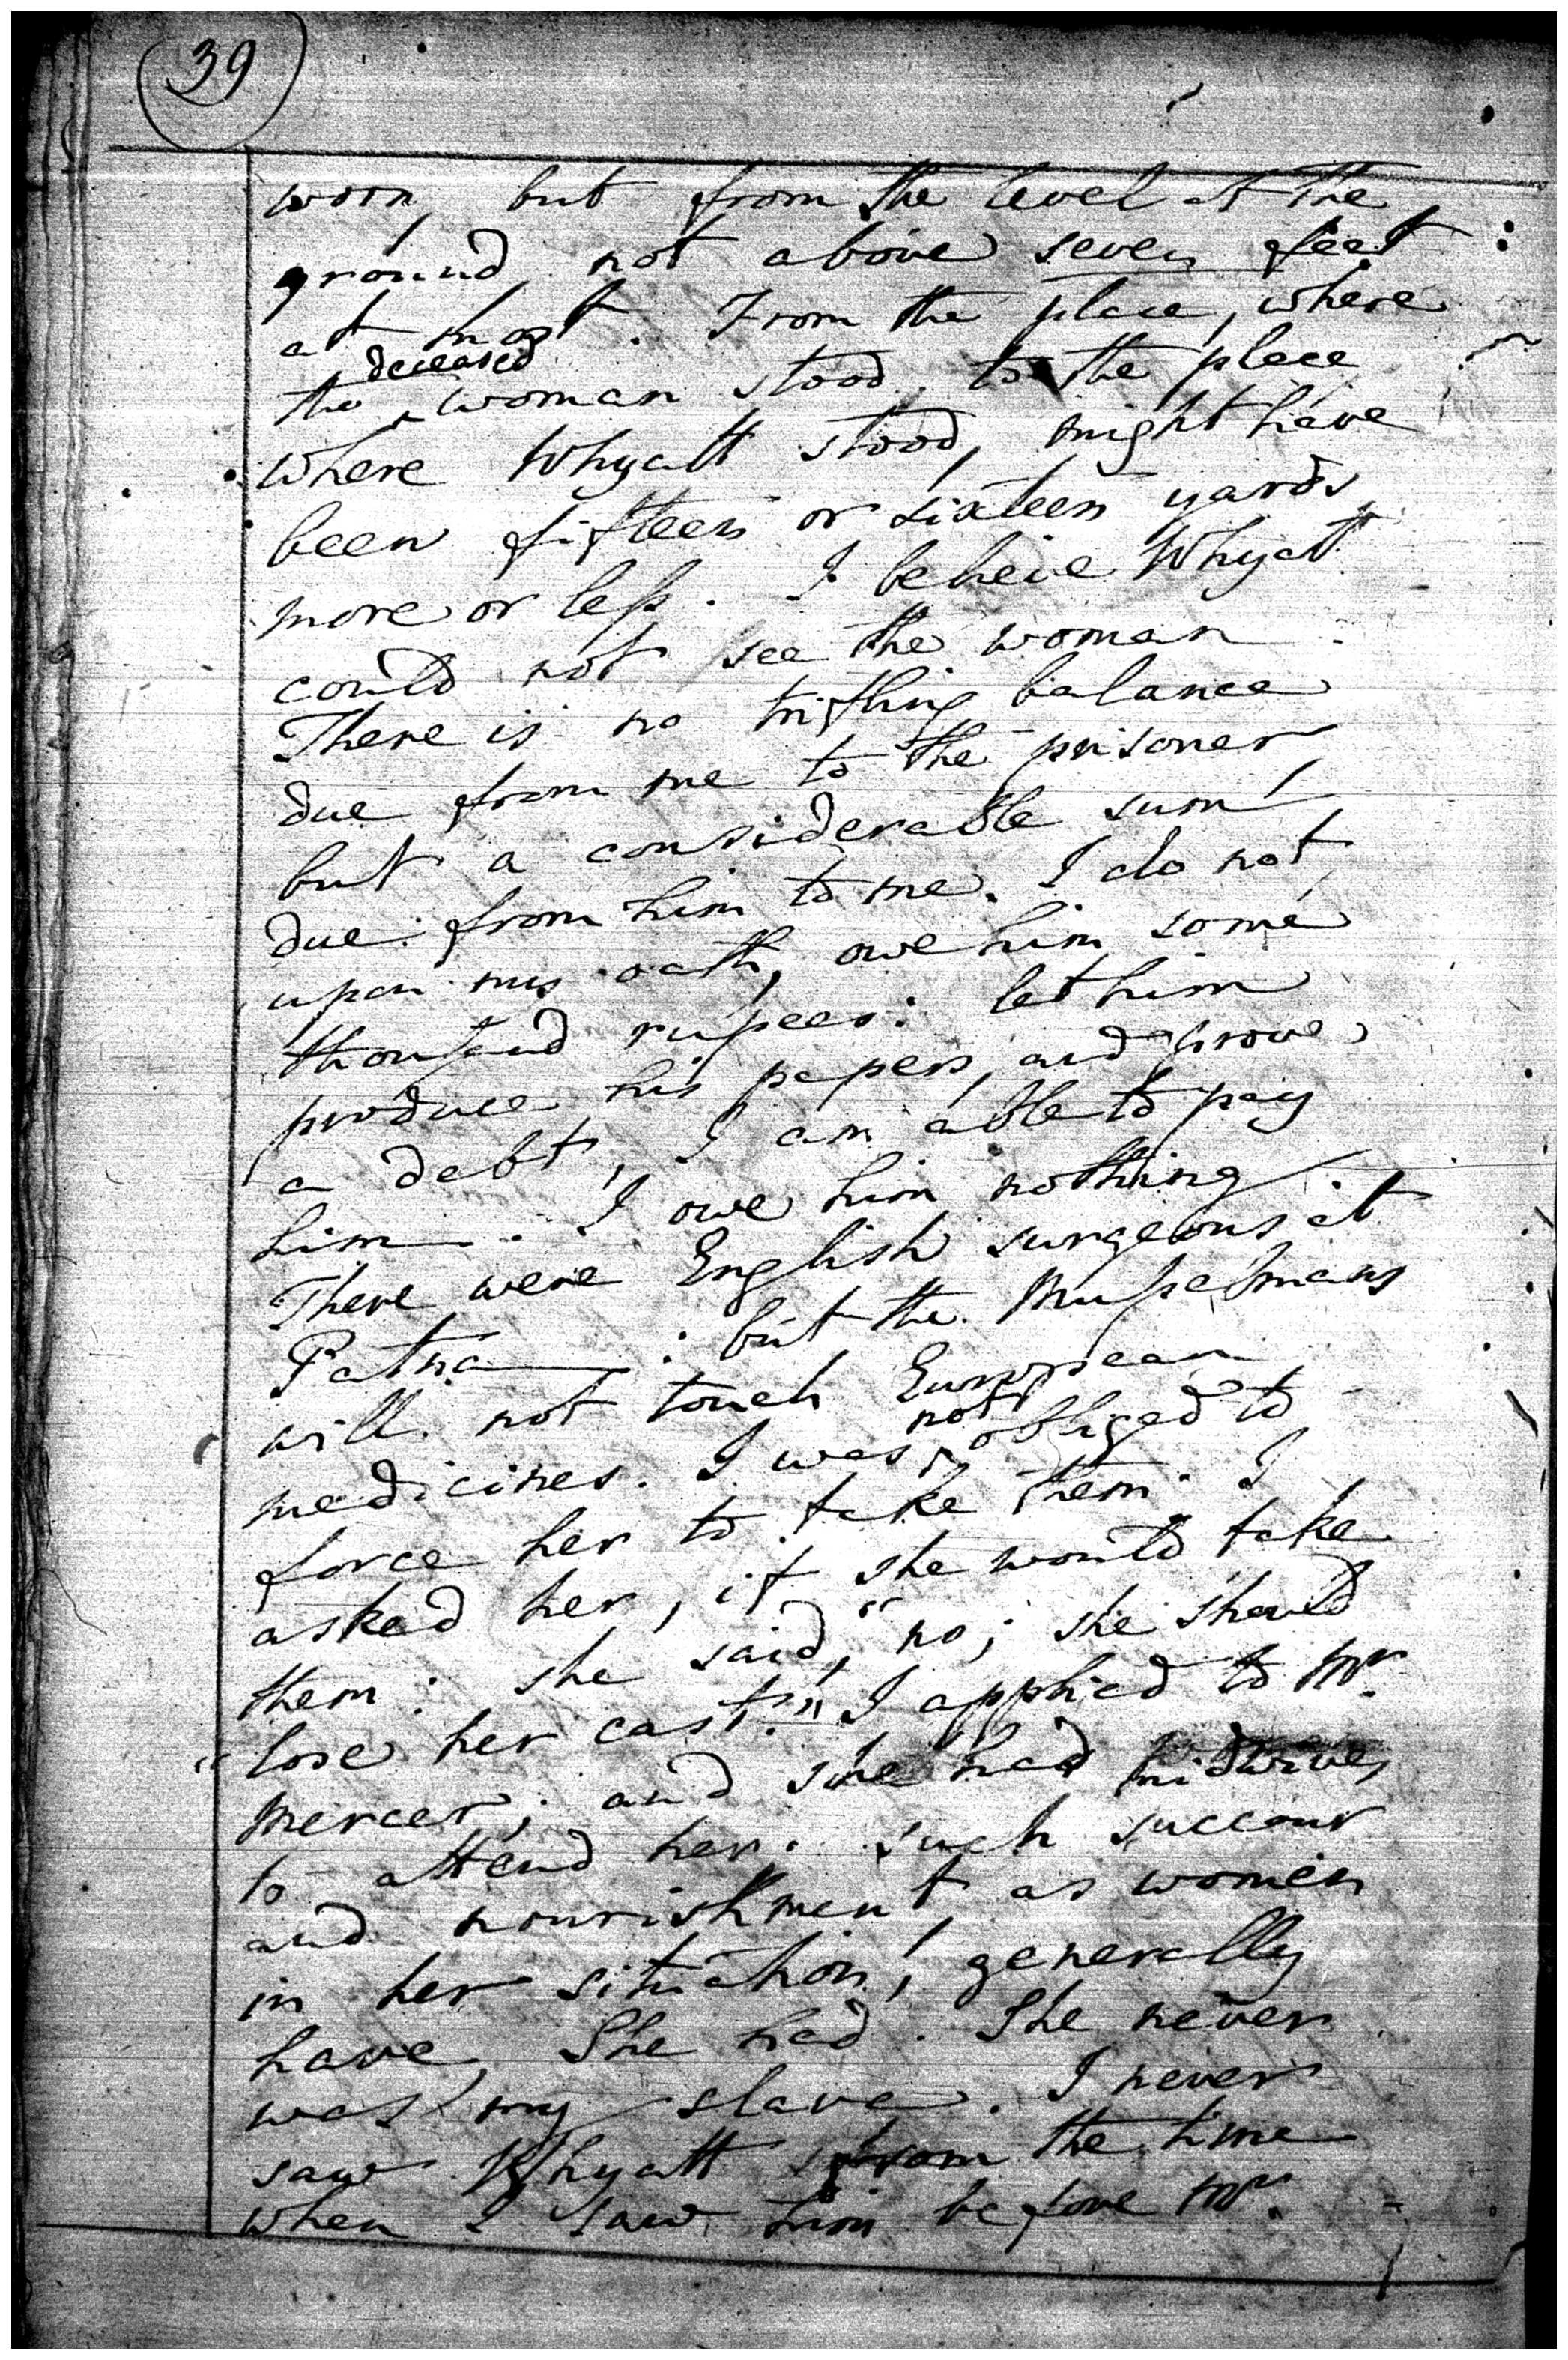 39
worn, but from the level of the
ground not above seven feet
at most. From the place, where
the deceased woman stood, to the place
where Whyatt stood, might have
been fifteen or sixteen yards
more or less. I believe Whyatt
could not see the woman.
There is no trifling balance
due from me to the prisoner,
but a considerable sum
due from him to me. I do not,
upon my oath, owe him some
thousand rupees: let him
produce his papers, and prove
a debt, I am able to pay
him. I owe him nothing.
There were English surgeons at
Patna: but the Musselmans
will not touch European
medicines. I was not obliged to
force her to take them. I
asked her, if she would take
them: she said, "no; she should
" lose her cast." I applied to Mr.
Mercer; and she had midwives
to attend her. Such succour
and nourishment, as women
in her situation, generally
have, She had. She never
was my slave. I never
saw Whyatt from the time
when I saw him before Mr.